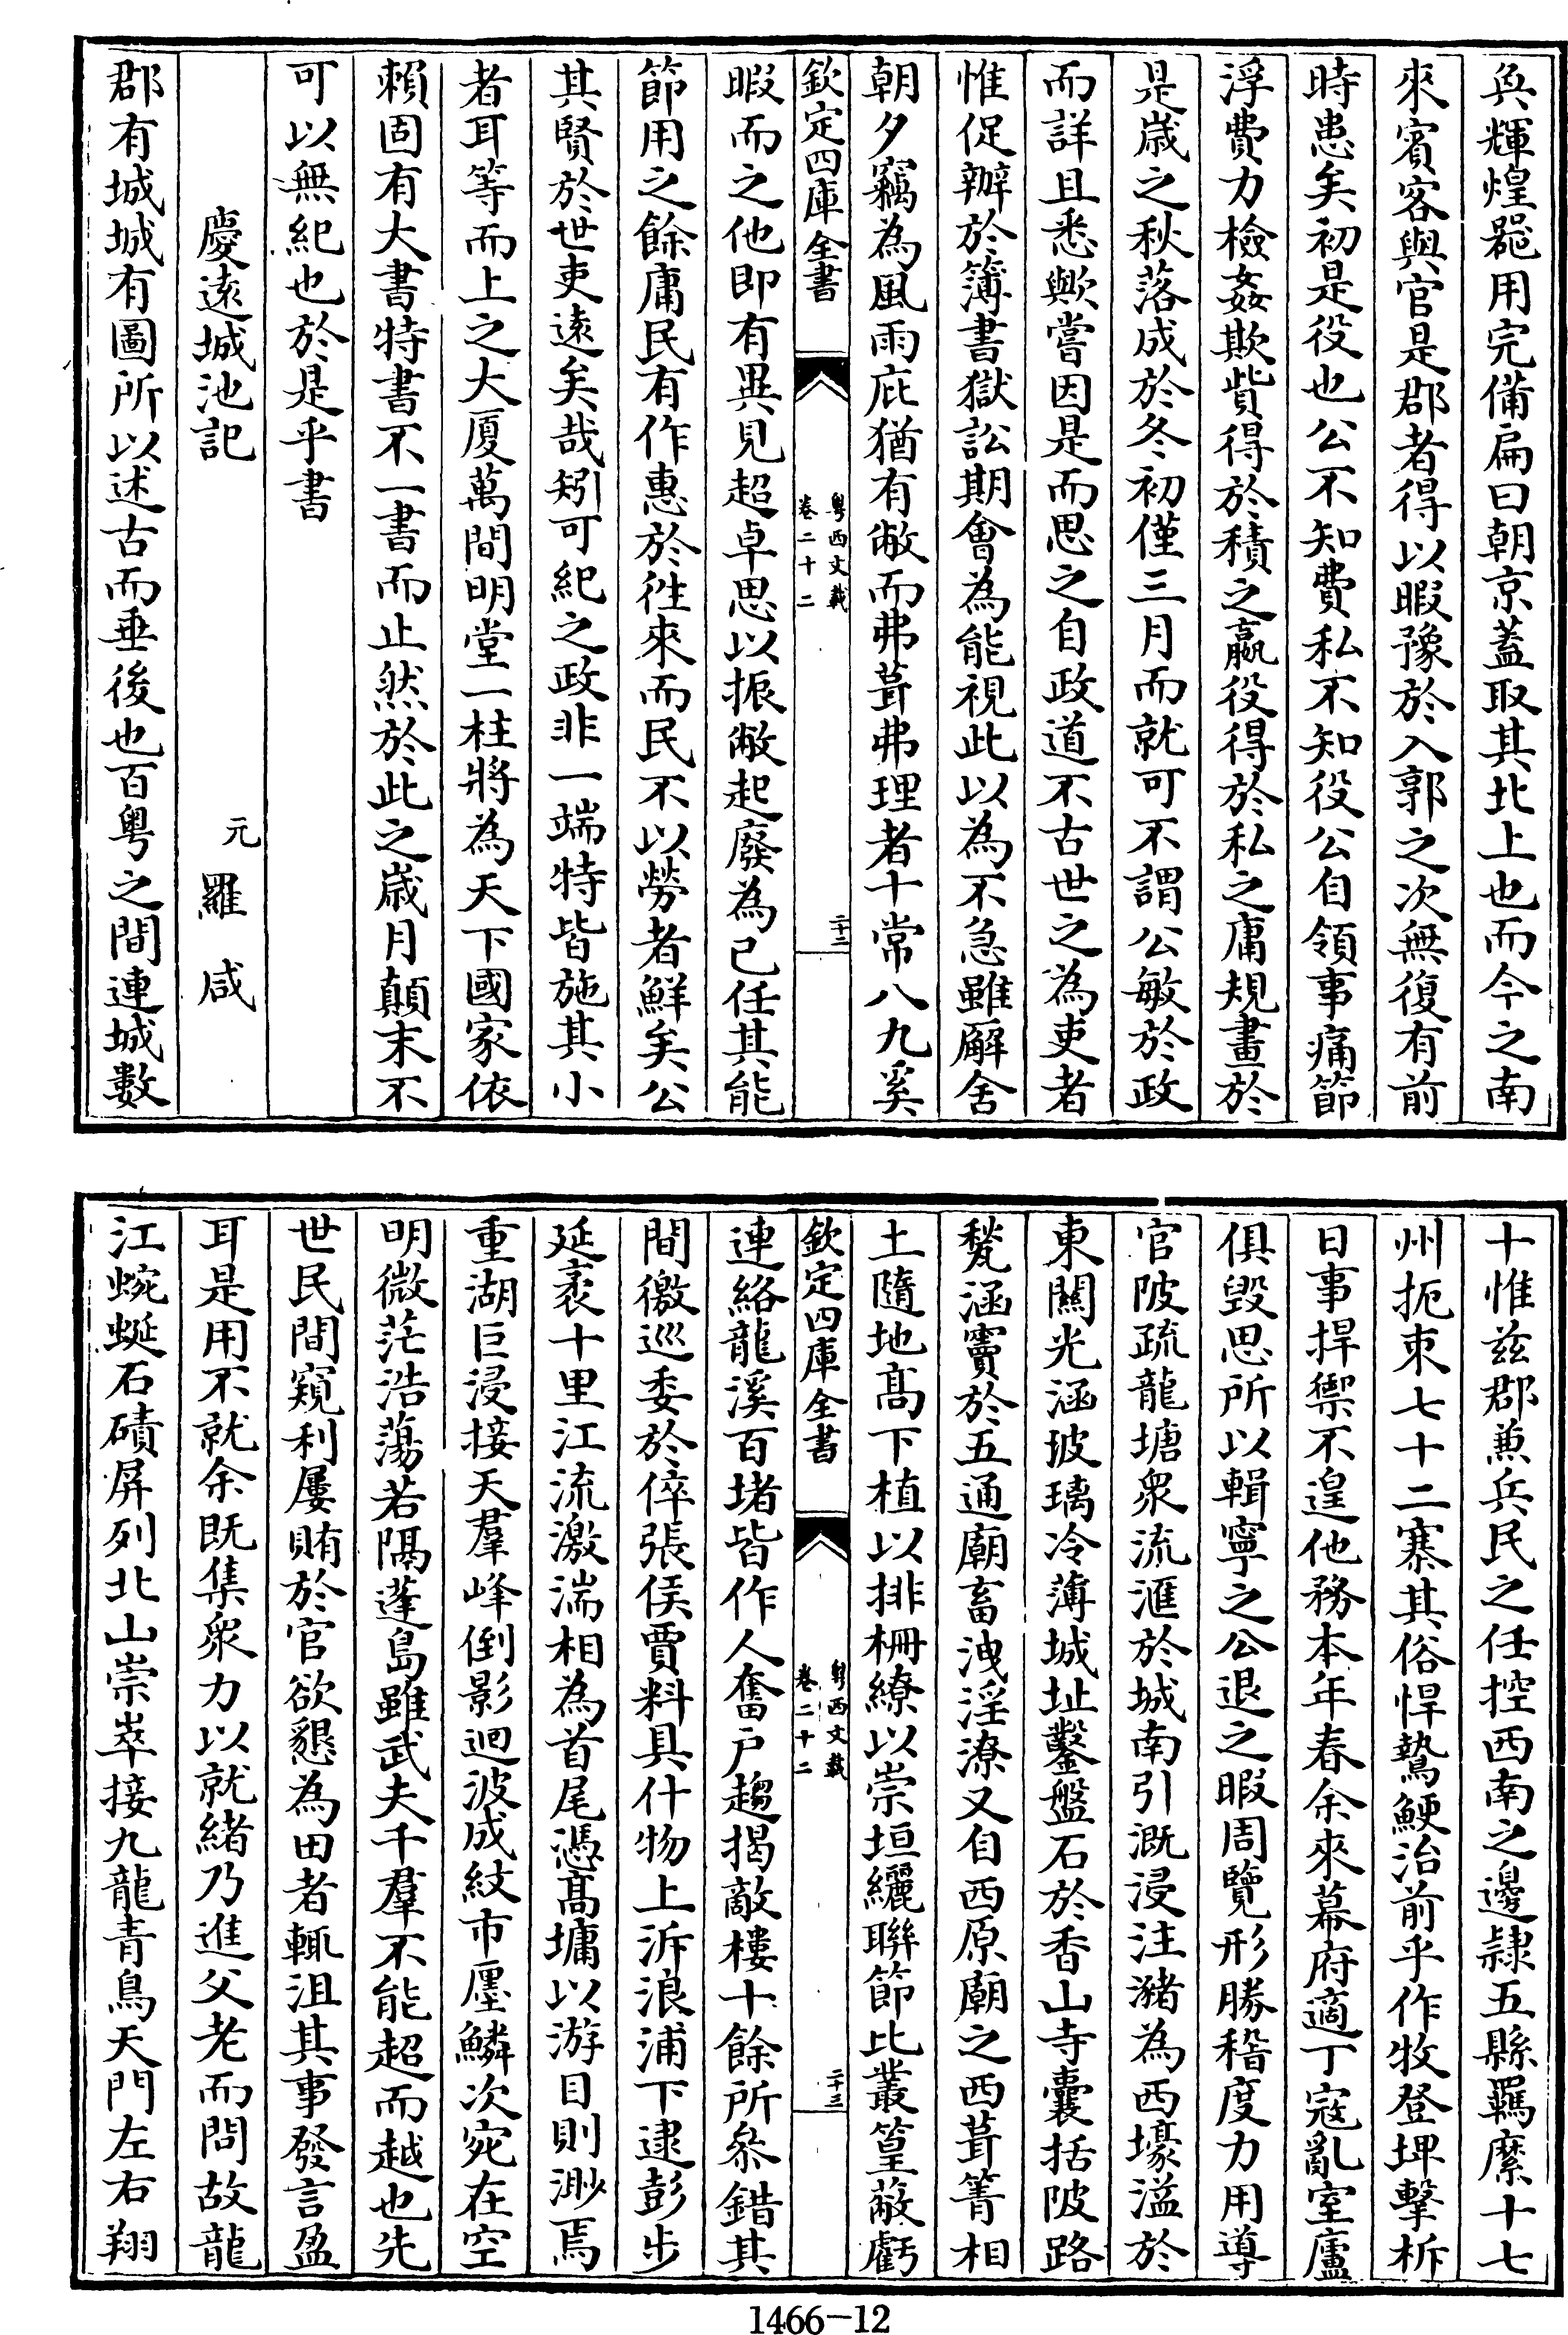 奐輝煌器用完備扁曰朝京蓋取其北上也而今之南
來賓客與官是郡者得以暇豫於入郭之次無復有前
時患矣初是役也公不知費私不知役公自領事痛節
浮費力檢姦欺貲得於積之贏役得於私之庸規畫於
是歲之秋落成於冬初僅三月而就可不謂公敏於政
而詳且悉歟嘗因是而思之自政道不古世之為吏者
惟促辦於簿書獄訟期會為能視此以為不急雖廨舍
朝夕竊為風雨庇猶有敝而弗葺弗理者十常八九奚
欽定四庫全書
粤西文載
卷二十二
二十二
暇而之他即有異見超卓思以振敝起廢為已任其能
節用之餘庸民有作惠於徃來而民不以勞者鮮矣公
其賢於世吏遠矣哉矧可紀之政非一端特皆施其小
者耳等而上之大厦萬間明堂一柱將為天下國家依
賴固有大書特書不一書而止然於此之歲月顛末不
可以無紀也於是乎書
慶遠城池記
元 羅咸
郡有城城有圖所以述古而垂後也百粤之間連城數
十惟兹郡兼兵民之任控西南之邊隷五縣羈縻十七
州扼束七十二寨其俗悍鷙鯁治前乎作牧登埤擊柝
日事捍禦不遑他務本年春余來幕府適丁寇亂室廬
俱毀思所以輯寧之公退之暇周覽形勝稽度力用導
官陂疏龍塘衆流滙於城南引溉浸注瀦為西壕溢於
東闗光涵玻璃冷薄城址鑿盤石於香山寺囊括陂路
甃涵竇於五通廟畜洩淫潦又自西原廟之西葺箐相
土隨地髙下植以排栅繚以崇垣纚聯節比叢篁蔽虧
欽定四庫全書
粤西文載
卷二十二
二十三
連絡龍溪百堵皆作人奮戸趨揭敵樓十餘所叅錯其
間徼巡委於倅張侯賈料具什物上泝浪浦下逮彭步
延袤十里江流激湍相為首尾憑髙墉以游目則渺焉
重湖巨浸接天羣峰倒影迴波成紋市廛鱗次宛在空
明微茫浩蕩若隔蓬島雖武夫千羣不能超而越也先
世民間窺利屢賄於官欲懇為田者輒沮其事發言盈
耳是用不就余既集衆力以就緒乃進父老而問故龍
江蜿蜒石磧屏列北山崇崒接九龍青鳥天門左右翔
1466-12